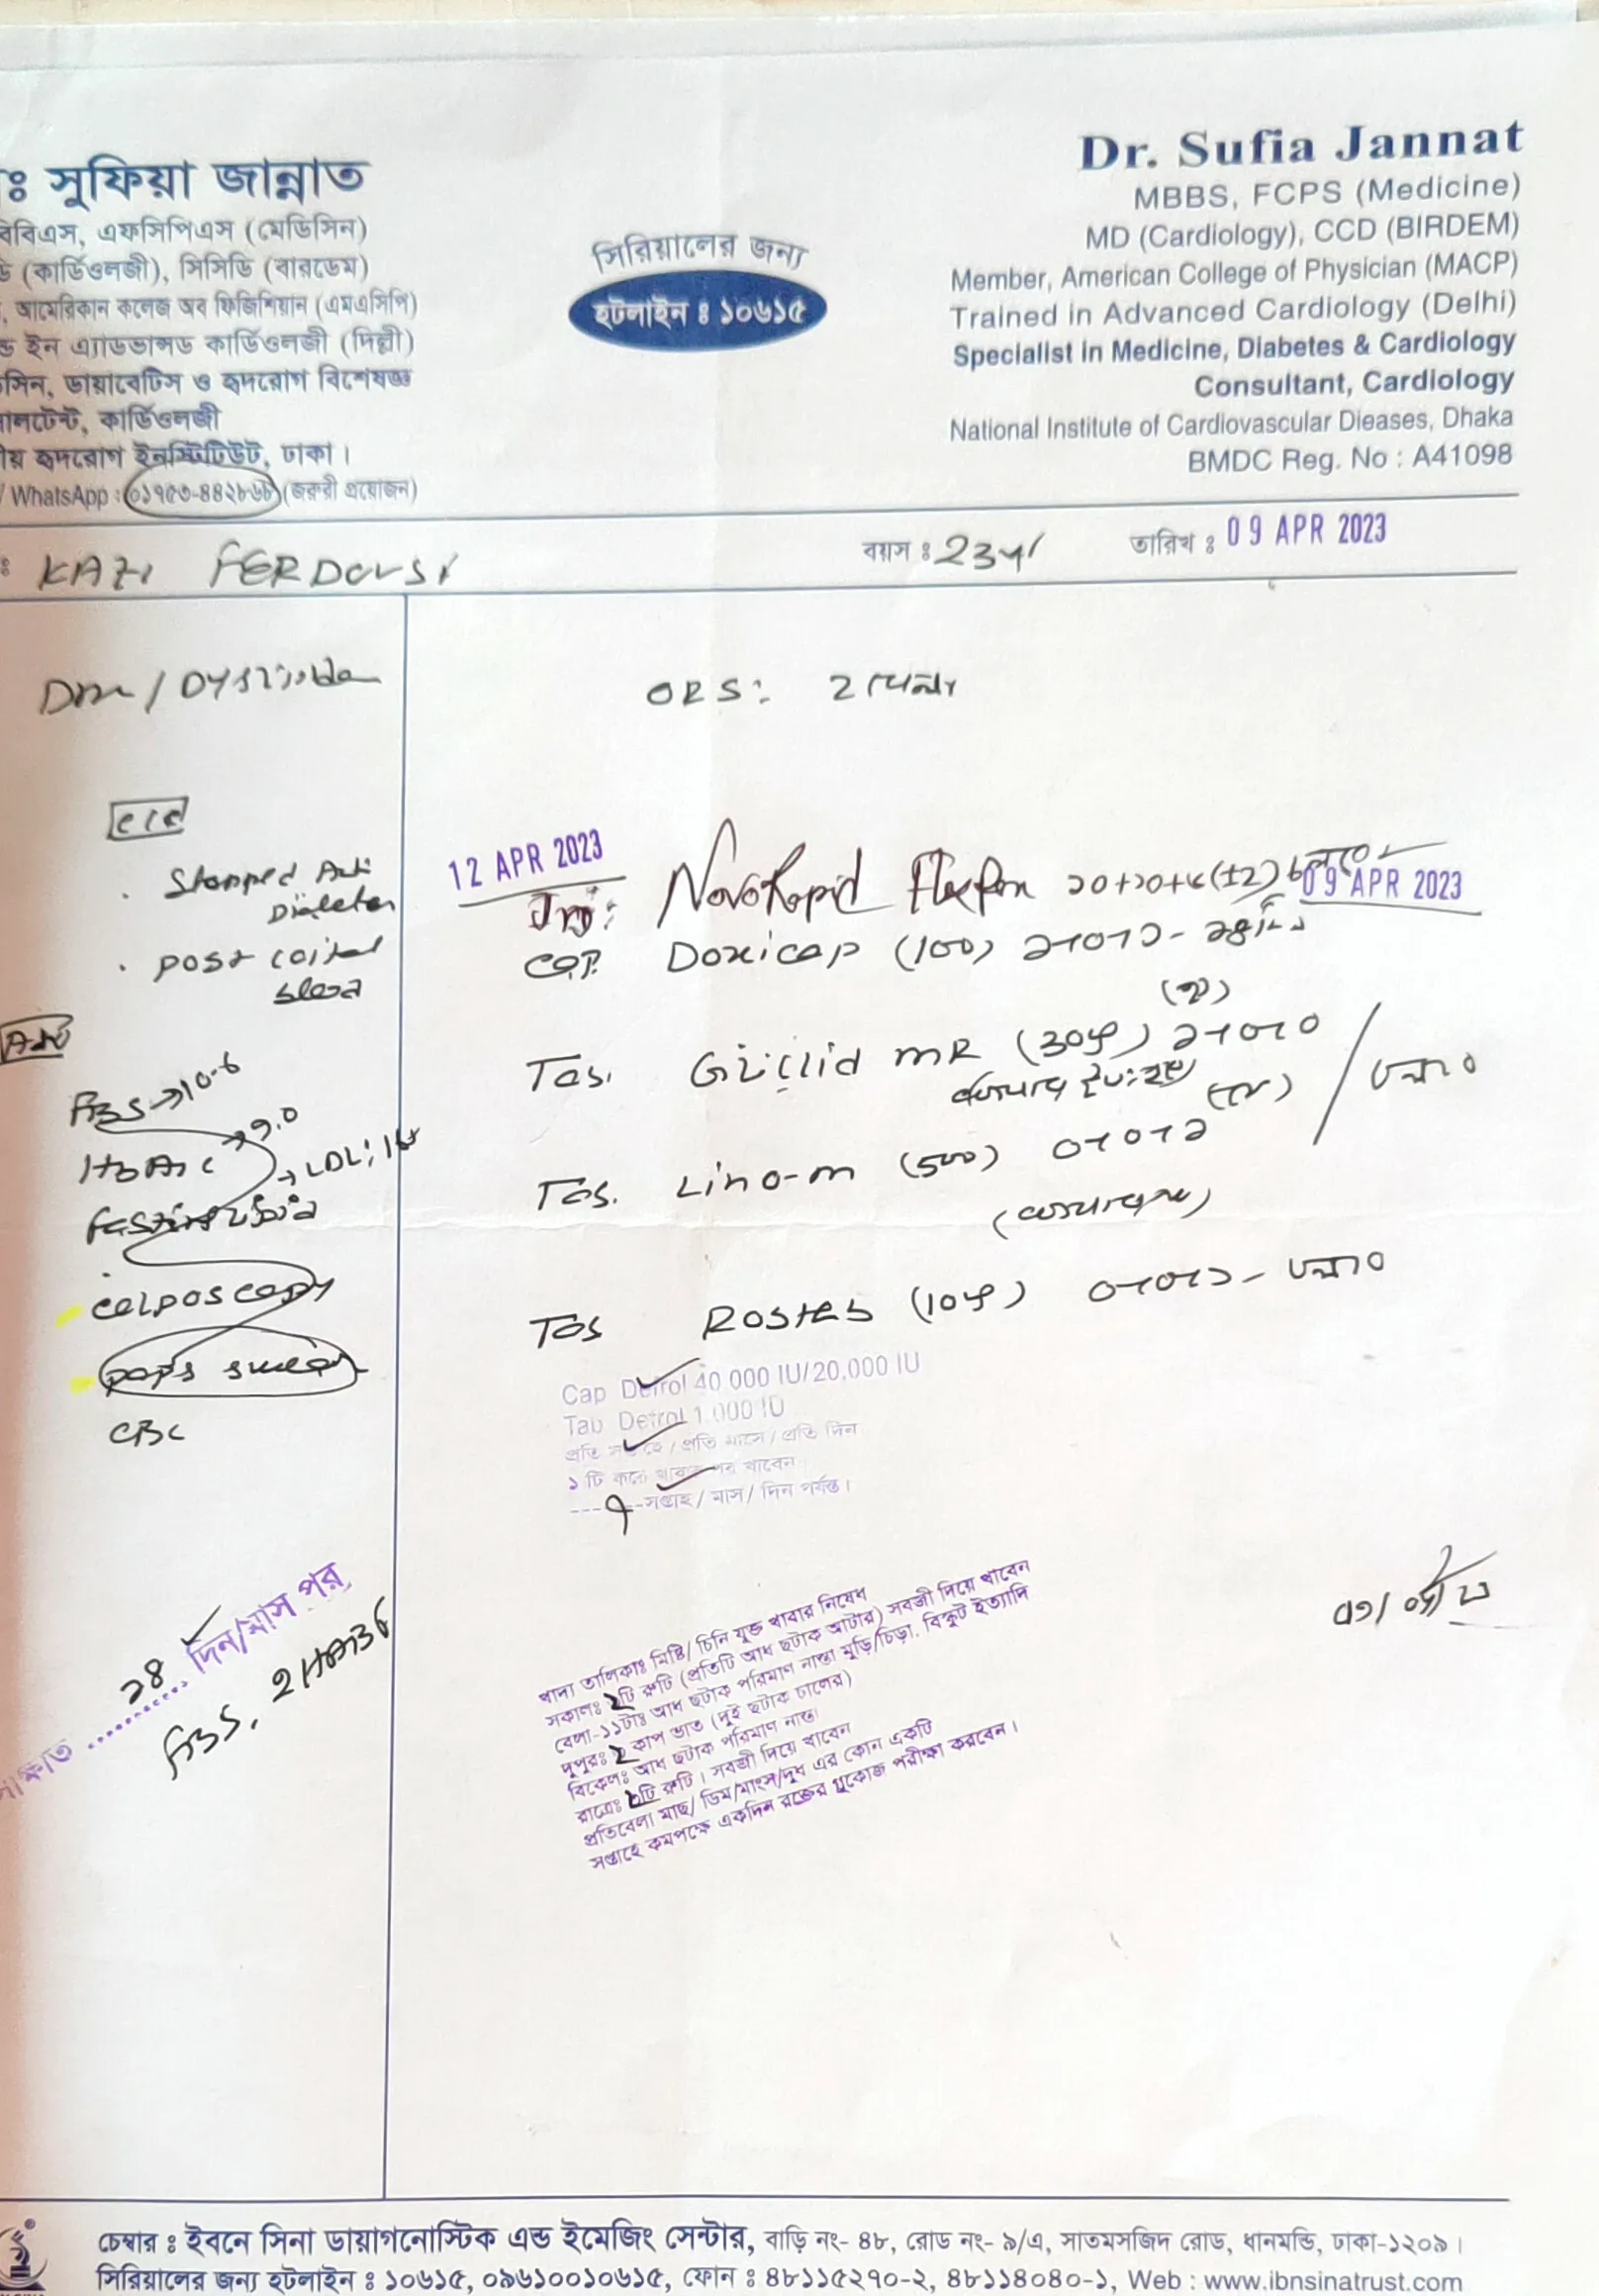 ঃ সুফিয়া জান্নাত
বিবিএস, এফসিপিএস (মেডিসিন)
ডি (কার্ডিওলজী), সিসিডি (বারডেম)
, আমেরিকান কলেজ অব ফিজিশিয়ান (এমএসিপি)
ড ইন এ্যাডভান্সড কার্ডিওলজী (দিল্লী)
সিন, ডায়াবেটিস ও হৃদরোগ বিশেষজ্ঞ
সালটেন্ট, কার্ডিওলজী
ীয় হৃদরোগ ইনস্টিটিউট, ঢাকা।
/ WhatsApp : ০১৭৫৩-৪৪২৮৬৮ (জরুরী প্রয়োজন)
সিরিয়ালের জন্য
হটলাইন ঃ ১০৬১৫
Dr. Sufia Jannat
MBBS, FCPS (Medicine)
MD (Cardiology), CCD (BIRDEM)
Member, American College of Physician (MACP)
Trained in Advanced Cardiology (Delhi)
Specialist in Medicine, Diabetes & Cardiology
Consultant, Cardiology
National Institute of Cardiovascular Dieases, Dhaka
BMDC Reg. No : A41098
ঃ KAZI FERDOUSI
বয়স ঃ 23y
তারিখ ঃ 09 APR 2023
DM /
C/C
. Stopped Anti
Diabeten
. post coital
bleed
Adv
FBS → 10.6
HbA1c → 9.0
→ LDL:
Fasting lipid
colposcopy
paps smear
CBC
১৪ দিন/মাস পর
FBS, 2HABF
ORS: 2 বেলা
12 APR 2023
Inj: NovoRapid FlexPen ১০+১০+৮ (±2)
09 APR 2023
Cap. Doxicap (100) ১+০+১ - ১৪ দিন
Tab. Gliclid MR (30mg) ১+০+০
Tab. Lino-M (500) ০+০+১ / চলবে
Tab Rosteb (10mg) ০+০+১ - চলবে
Cap Defrol 40 000 IU/20,000 IU
Tab Defrol 1.000 IU
প্রতি সপ্তাহে / প্রতি মাসে / প্রতি দিন
১ টি করে খাবার পর খাবেন
---৭---সপ্তাহ / মাস / দিন পর্যন্ত।
খাদ্য তালিকাঃ মিষ্টি/ চিনি যুক্ত খাবার নিষেধ
সকালঃ ২টি রুটি (প্রতিটি আধ ছটাক আটার) সবজী দিয়ে খাবেন
বেলা-১১টাঃ আধ ছটাক পরিমাণ নাস্তা মুড়ি/চিড়া, বিস্কুট ইত্যাদি
দুপুরঃ ২ কাপ ভাত (দুই ছটাক চালের)
বিকেলঃ আধ ছটাক পরিমাণ নাস্তা
রাত্রেঃ ২টি রুটি। সবজী দিয়ে খাবেন
প্রতিবেলা মাছ/ ডিম/মাংস/দুধ এর কোন একটি
সপ্তাহে কমপক্ষে একদিন রক্তের গ্লুকোজ পরীক্ষা করবেন।
চেম্বার ঃ ইবনে সিনা ডায়াগনোস্টিক এন্ড ইমেজিং সেন্টার, বাড়ি নং- ৪৮, রোড নং- ৯/এ, সাতমসজিদ রোড, ধানমন্ডি, ঢাকা-১২০৯।
সিরিয়ালের জন্য হটলাইন ঃ ১০৬১৫, ০৯৬১০০১০৬১৫, ফোন ঃ ৪৮১১৫২৭০-২, ৪৮১১৪০৪০-১, Web : www.ibnsinatrust.com